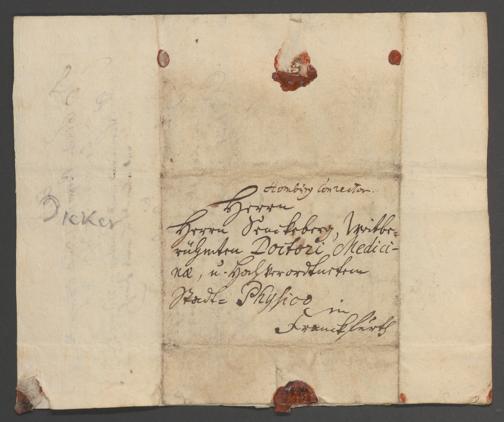 Homburg Conrector.
Herrn
Herrn Senckeberg, Weitbe-
rühmten Doctori Medici-
næ, u. Hochverordnetem
Stadt- Physico
in
Franckfurth
Dieker